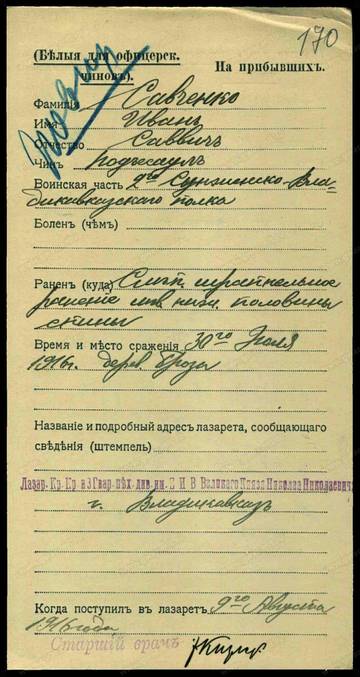 170
(Бѣлыя для офицерск. чиновъ).
На прибывшихъ.
Фамилія Савченко
Имя Иванъ
Отчество Саввичъ
Чинъ Подъесаулъ
Воинская часть 2го Сунженско-Вла-
дикавказскаго полка
Боленъ (чѣмъ)
Раненъ (куда) Слѣп. шрапнельное
ранение лѣв. нижн. половины
спины
Время и мѣсто сраженія 30го Іюля
1916г. дерев.
Названіе и подробный адресъ лазарета, сообщающаго
свѣдѣнія (штемпель)
Лазар. Кр. Кр. 3 Гвар. пѣх. див. им. Е И В Великаго Князя Николая Николаевича
г. Владикавказъ
Когда поступилъ въ лазаретъ 9го Августа
1916 года
Старшій врачъ